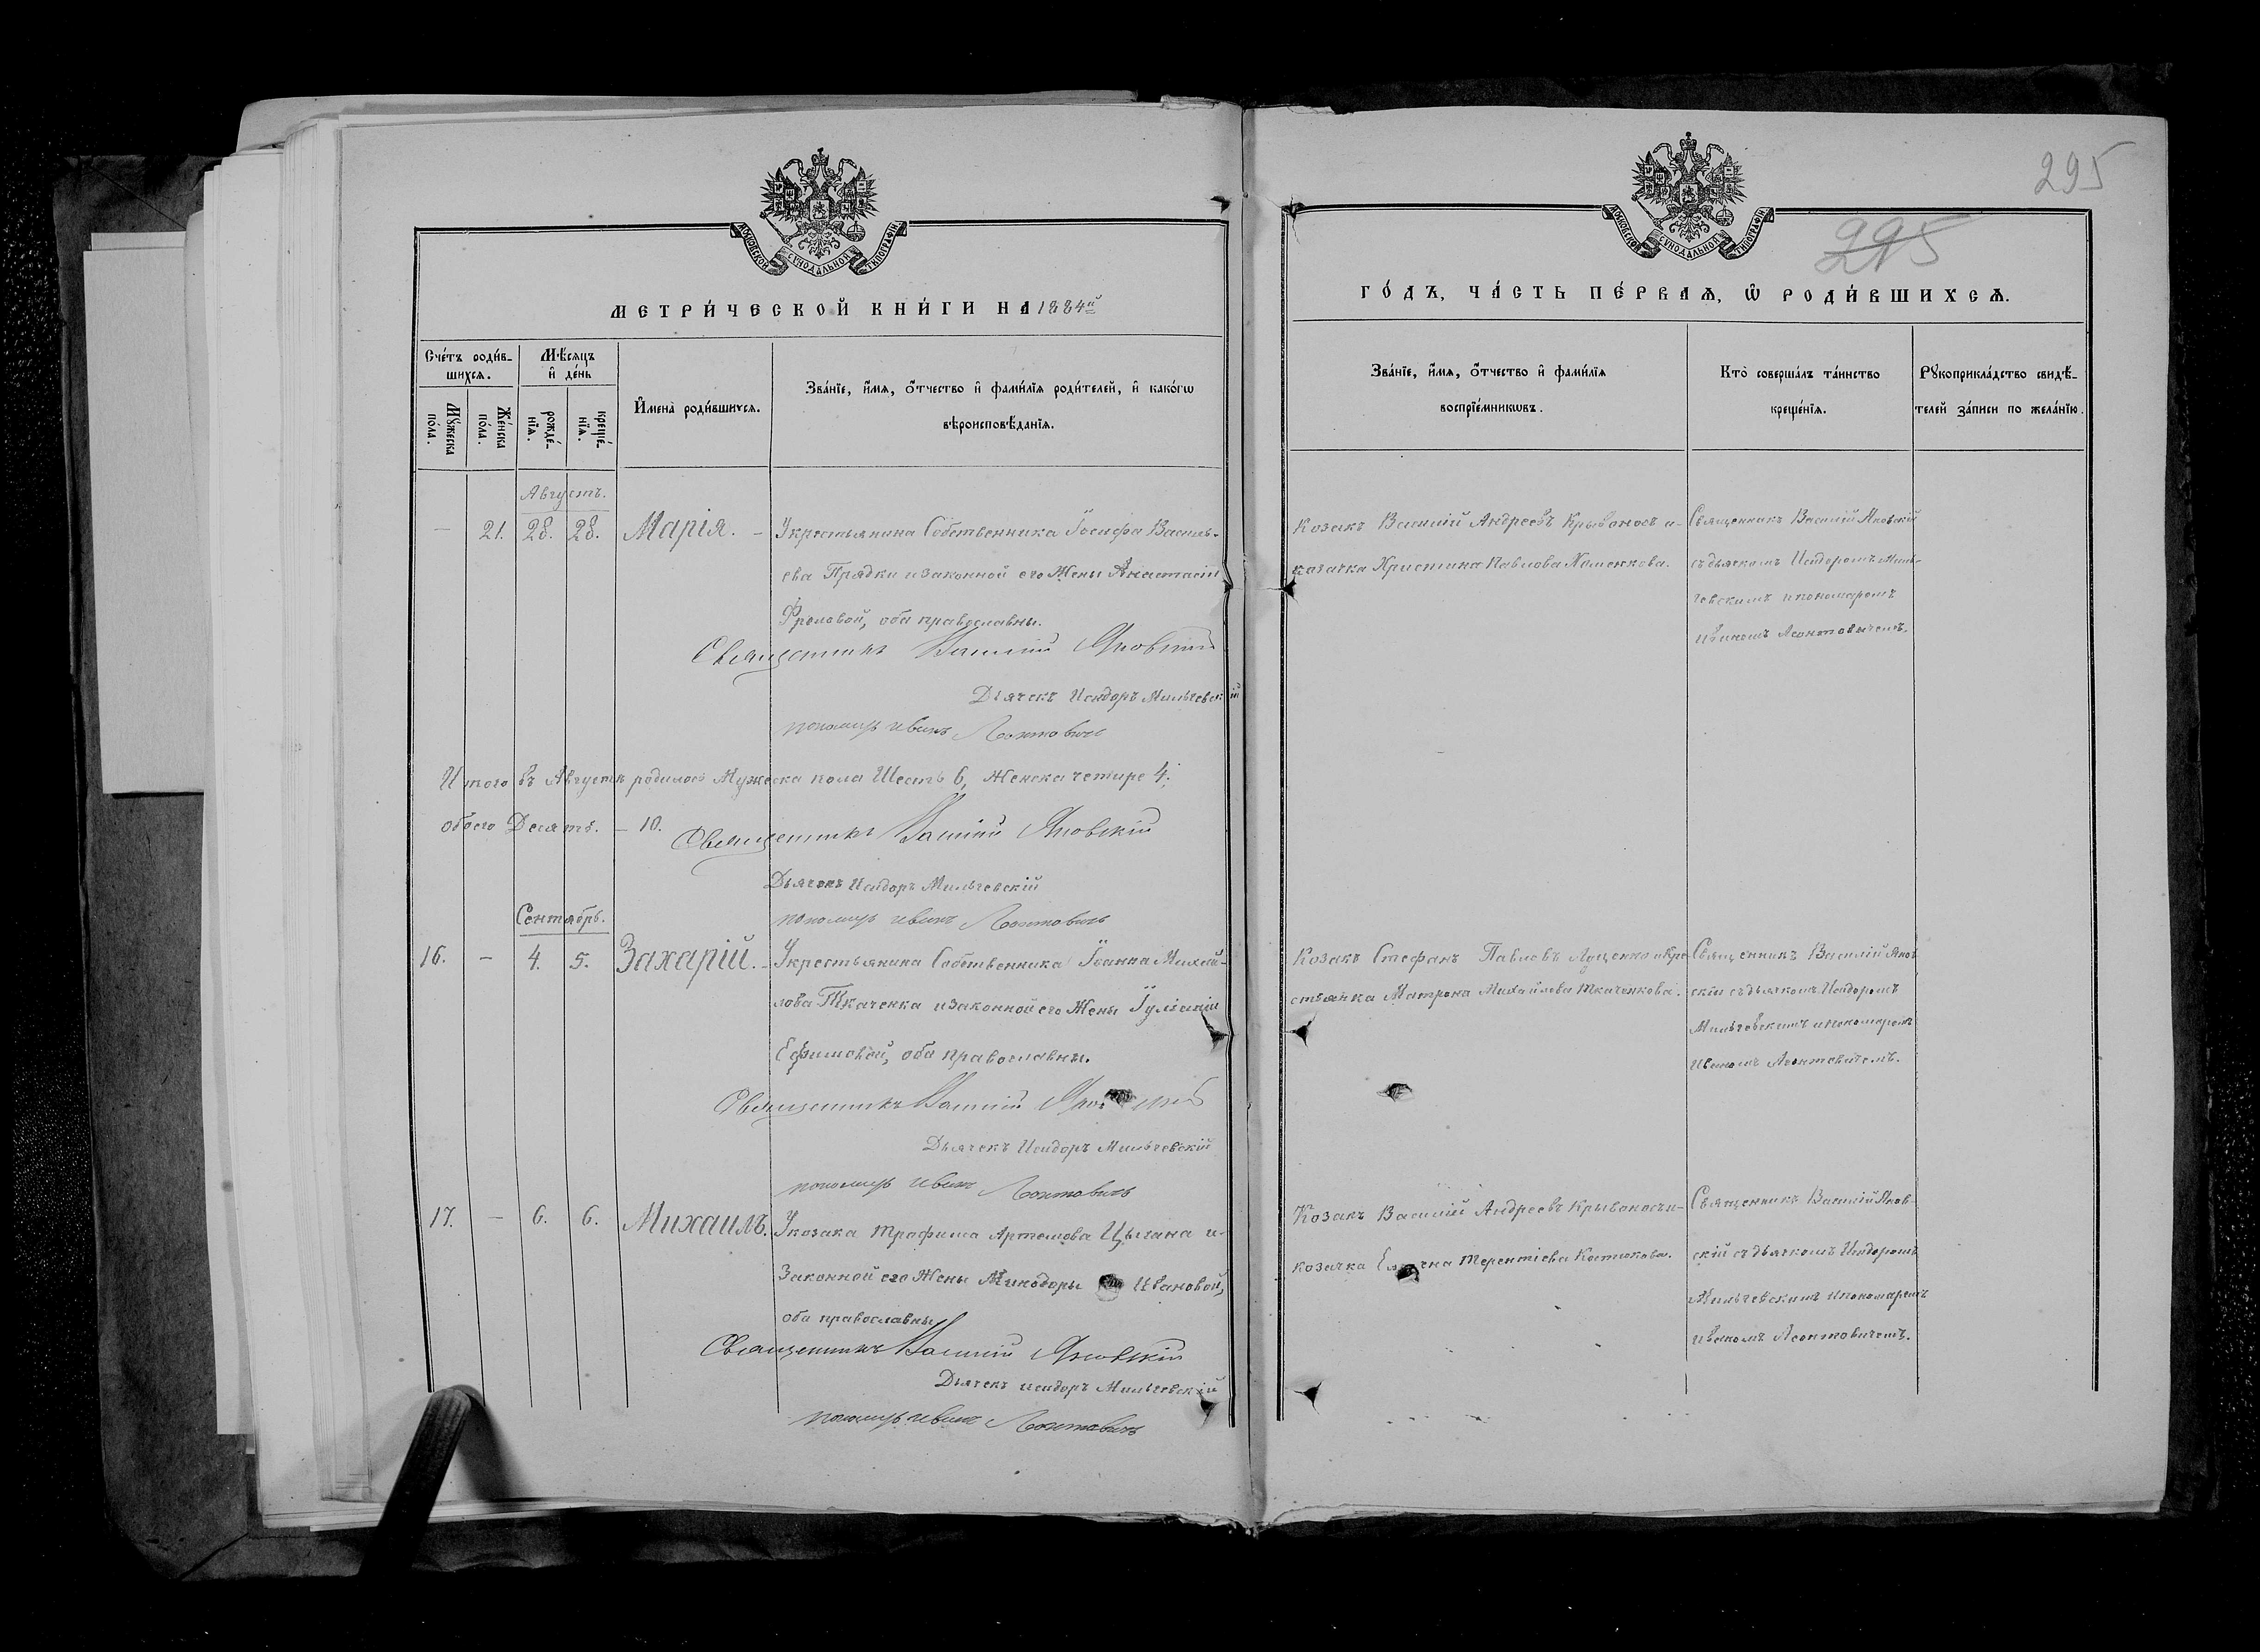 295
295
МОСКОВСКОЙ СѴНОДАЛЬНОЙ ТИПОГРАФІИ
МОСКОВСКОЙ СѴНОДАЛЬНОЙ ТИПОГРАФІИ
МЕТРИ́ЧЕСКОЙ КНИ́ГИ НА 1884й
ГО́ДЪ, ЧА́СТЬ ПЕ́РВАѦ, Ѡ҆ РОДИ́ВШИХСѦ.
Сче́тъ роди́в-
шихсѧ.
Мꙋ́жеска по́ла.
Же́нска по́ла.
Мѣ́сѧцъ
и҆ де́нь
рожде́-нїѧ.
креще́-нїѧ.
И҆мена̀ роди́вшихсѧ.
Зва́нїе, и҆́мѧ, ѻ҆́тчество и҆ фами́лїѧ роди́телей, и҆ како́гѡ
вѣроисповѣ́данїѧ.
Зва́нїе, и҆́мѧ, ѻ҆́тчество и҆ фами́лїѧ
воспрїе́мникѡвъ.
Кто̀ соверша́лъ та́инство
креще́нїѧ.
Рꙋкоприкла́дство свидѣ́-
телей за́писи по жела́нїю.
Августъ.
— 21. 28. 28. Марія. — У крестьянина Собственника Іосифа Василь-
ева Прядки и законной его Жены Анастасіи
Фроловой, оба православны.
Священникъ Василій Яновскій
Дьячекъ Исидоръ Мильчевскій
пономарь Иванъ Леонтовичъ
Козакъ Василій Андреевъ Крывоносъ и-
козачка Христина Павлова
Священникъ Василій Яновскій
съ дьячкомъ Исидоромъ Миль-
чевскимъ и пономаремъ
Иваномъ Леонтовичемъ.
Итого въ Августѣ родилось Мужеска пола Шесть 6, Женска четыре 4;
обоего Десять. — 10.
Священникъ Василій Яновскій
Дьячекъ Исидоръ Мильчевскій
пономарь Иванъ Леонтовичъ
Сентябрь.
16. — 4. 5. Захарій. — У крестьянина Собственника Іоанна Михай-
лова Ткаченка и законной его Жены Іуліаніи
Ефимовой, оба православны.
Священникъ Василій
Дьячекъ Исидоръ Мильчевскій
пономарь Иванъ Леонтовичъ
Козакъ Стефанъ Павловъ Луценко и Кре-
стьянка Матрона Михайлова Ткаченкова.
Священникъ Василій Янов-
скій съ дьячкомъ Исидоромъ
Мильчевскимъ и пономаремъ
Иваномъ Леонтовичемъ.
17. — 6. 6. Михаилъ. У козака Трофима Артемова Цыгана и-
Законной его Жены Минодоры Ивановой,
оба православны
Священникъ Василій Яновскій
Дьячекъ Исидоръ Мильчевскій
пономарь Иванъ Леонтовичъ
Козакъ Василій Андреевъ Крывоносъ и-
козачка Терентіева Костюкова.
Священникъ Василій Янов-
скій съ дьячкомъ Исидоромъ
Мильчевскимъ и пономаремъ
Иваномъ Леонтовичемъ.